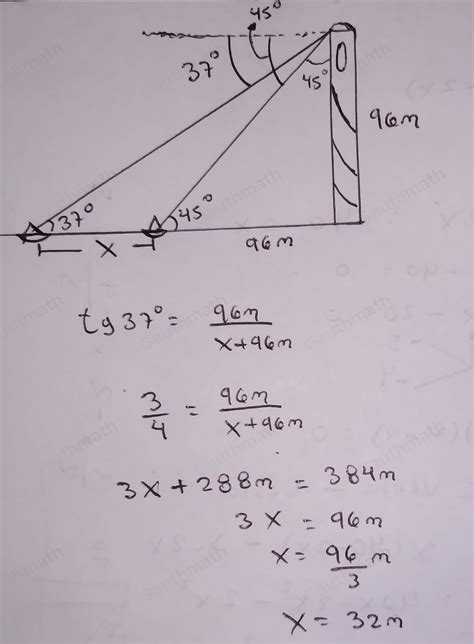 45°
37°
45°
96m
37°
45°
x
96m
tg37° = 96m / x+96m
3/4 = 96m / x+96m
3x + 288m = 384m
3x = 96m
x = 96/3 m
x = 32m